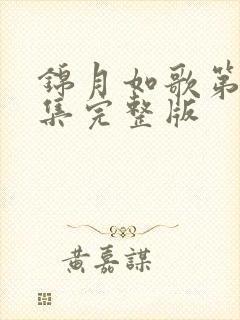 錦月如歌第
集完整版
黃嘉謀